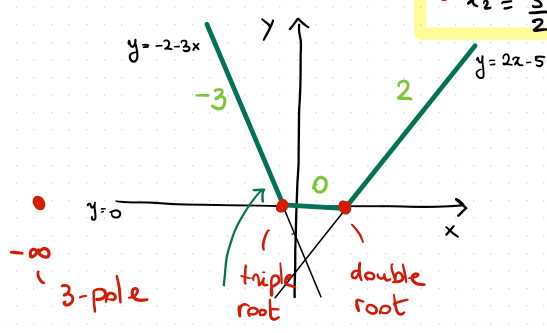 x₂ = 5/2
y
y = -2-3x
y = 2x-5
-3
2
0
y=0
x
-∞
3-pole
triple
root
double
root